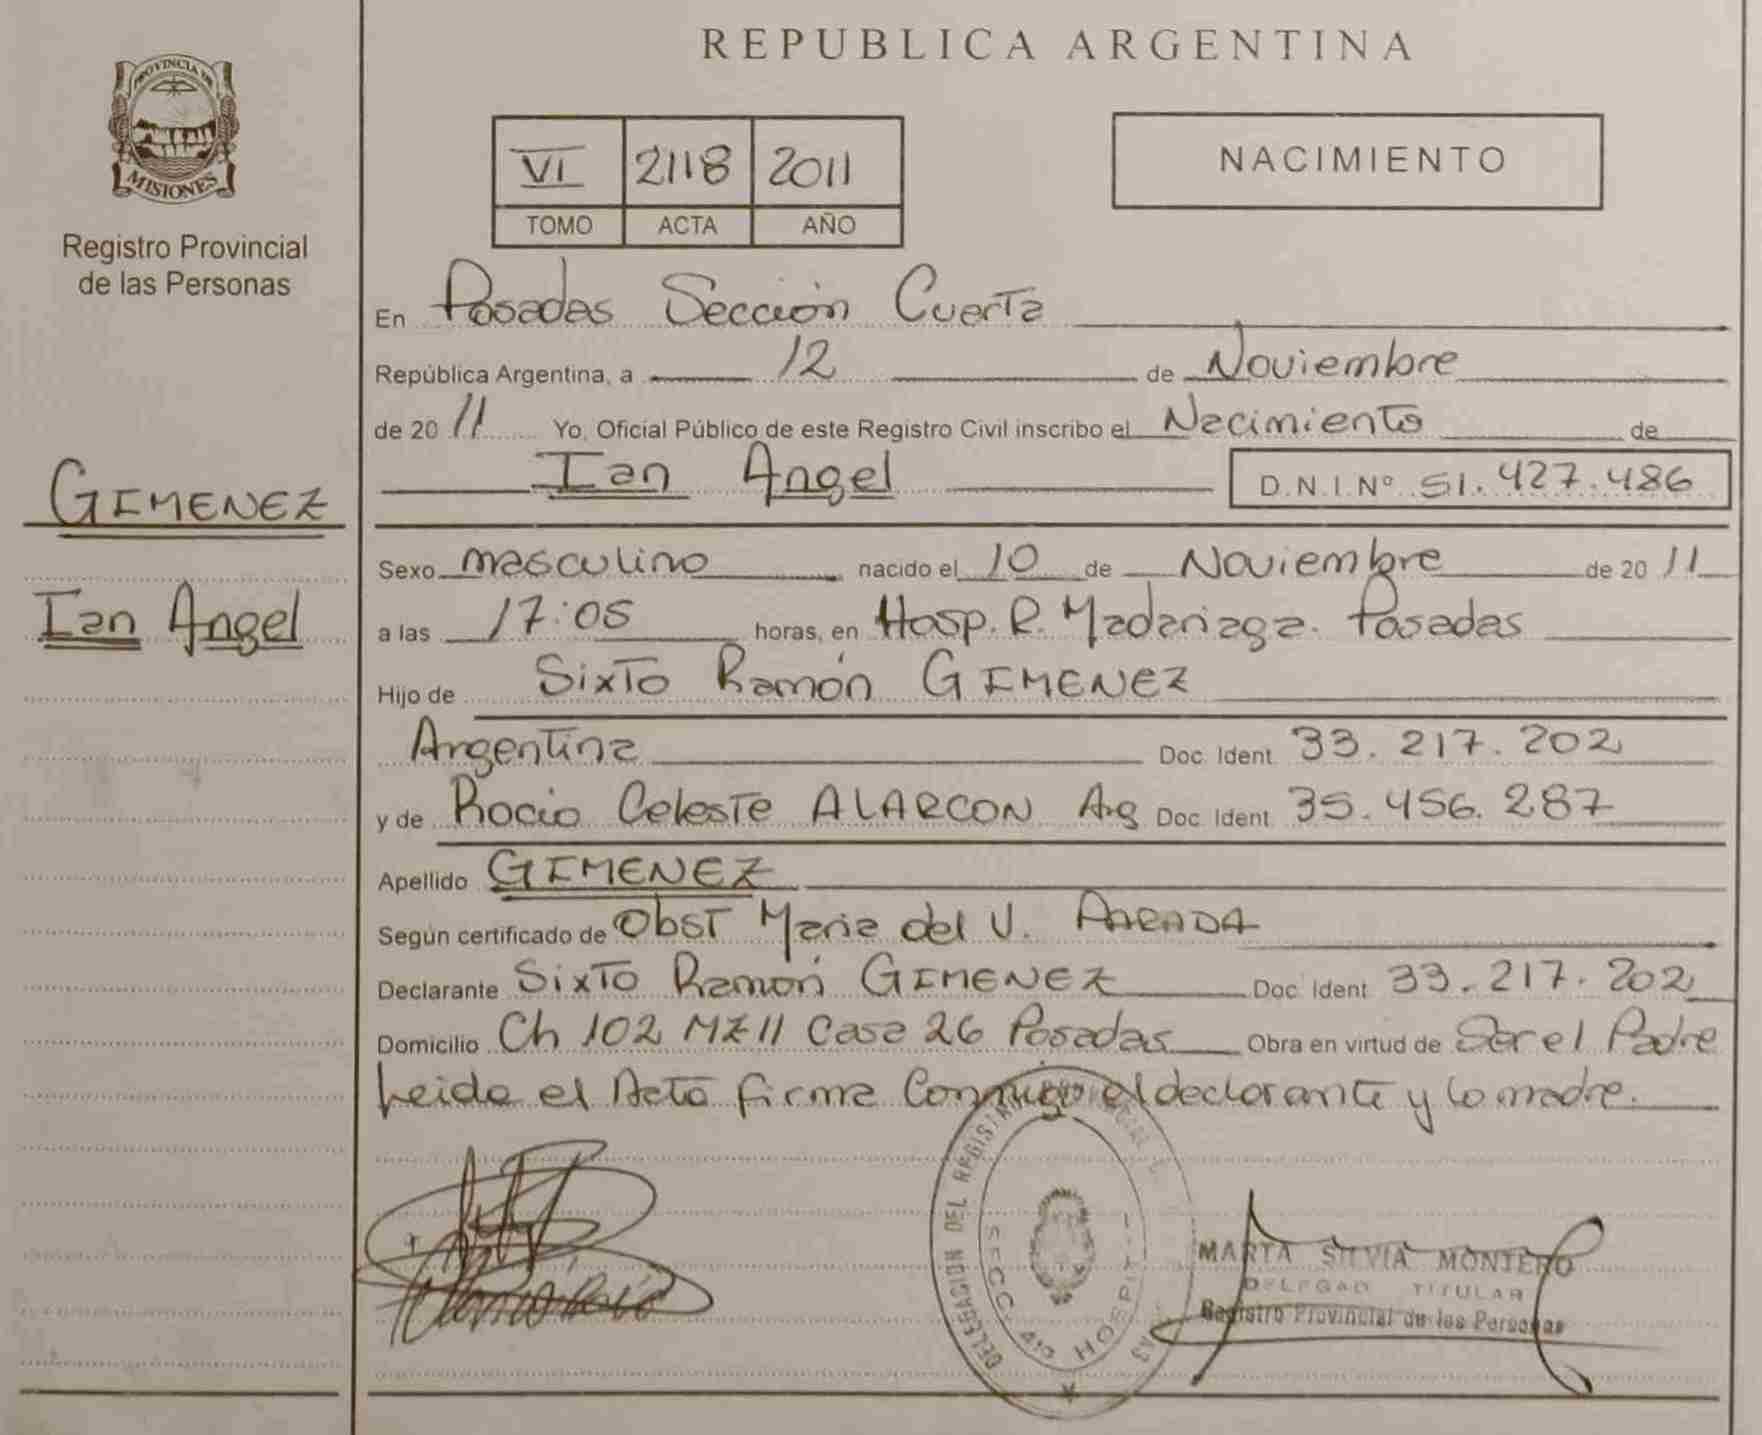 PROVINCIA DE
MISIONES
Registro Provincial
de las Personas
GIMENEZ
Ian Angel
REPUBLICA ARGENTINA
VI 2118 2011
TOMO ACTA AÑO
NACIMIENTO
En Posadas Sección Cuarta
República Argentina, a 12 de Noviembre
de 2011 Yo, Oficial Público de este Registro Civil inscribo el Nacimiento de
Ian Angel D.N.I.Nº 51.427.486
Sexo masculino nacido el 10 de Noviembre de 2011
a las 17:05 horas, en Hosp. R. Madariaga. Posadas
Hijo de Sixto Ramón GIMENEZ
Argentina Doc. Ident. 33.217.202
y de Rocio Celeste ALARCON Arg Doc. Ident. 35.456.287
Apellido GIMENEZ
Según certificado de Obst Maria del V. PARADA
Declarante Sixto Ramón GIMENEZ Doc. Ident. 33.217.202
Domicilio Ch 102 MZ 11 Casa 26 Posadas Obra en virtud de Ser el Padre
Leida el Acta firma Conmigo el declarante y la madre.
DELEGACION DEL REGISTRO
SECC. 4ta HOSPIT
MARTA SILVIA MONTERO
DELEGAD TITULAR
Registro Provincial de las Personas